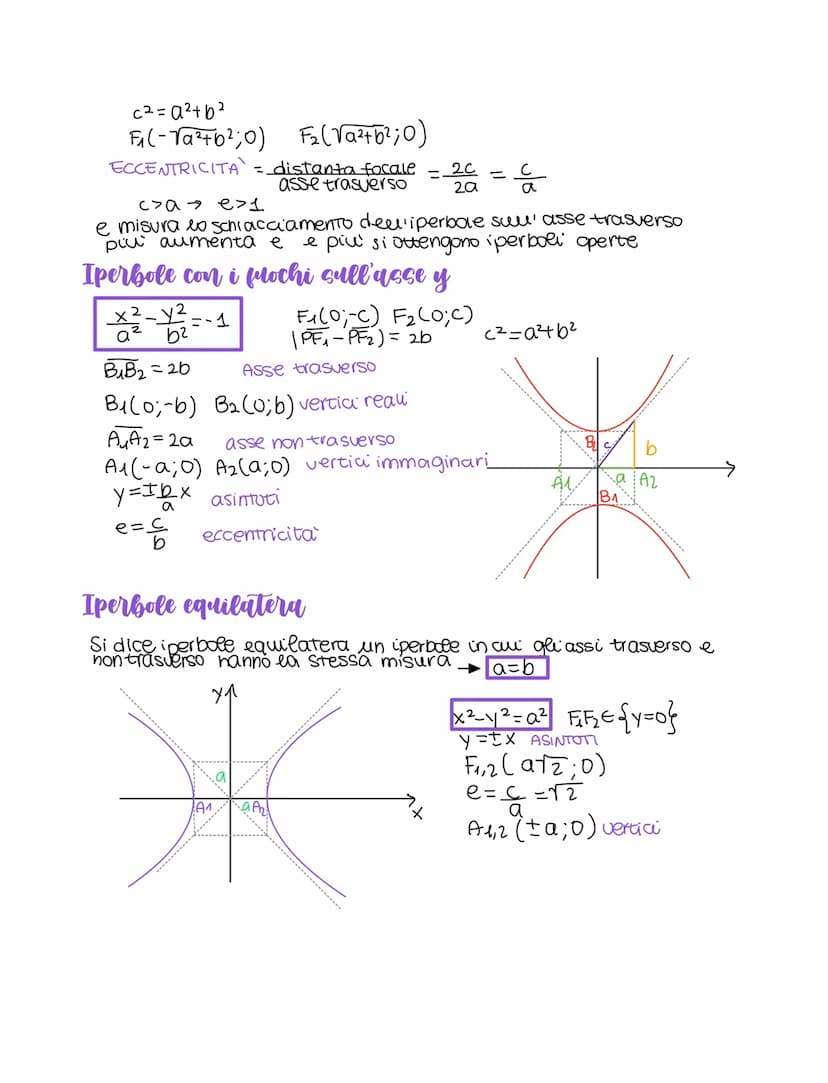 c²=a²+b²
F₁(-√a²+b²;0) F₂(√a²+b²;0)
ECCENTRICITA' = distanta focale / asse trasverso = 2c/2a = c/a
c>a → e>1
e misura lo schiacciamento dell'iperbole sull'asse trasverso
più aumenta e e più si ottengono iperboli aperte
Iperbole con i fuochi sull'asse y
x²/a² - y²/b² = -1
F₁(0;-c) F₂(0;c)
|PF₁-PF₂|= 2b
c²=a²+b²
B₁B₂ = 2b Asse trasverso
B₁(0;-b) B₂(0;b) vertici reali
A₁A₂=2a asse non trasverso
A₁(-a;0) A₂(a;0) vertici immaginari
y=±b/a x asintoti
e=c/b eccentricità
B₂ c b
A₁ a A₂
B₁
Iperbole equilatera
Si dice iperbole equilatera un iperbole in cui gli assi trasverso e
non trasverso hanno la stessa misura → a=b
y
a
A₁ a A₂
x
x²-y²=a² F₁F₂∈{y=0}
y=±x ASINTOTI
F₁,₂(a√2;0)
e=c/a=√2
A₁,₂(±a;0) vertici